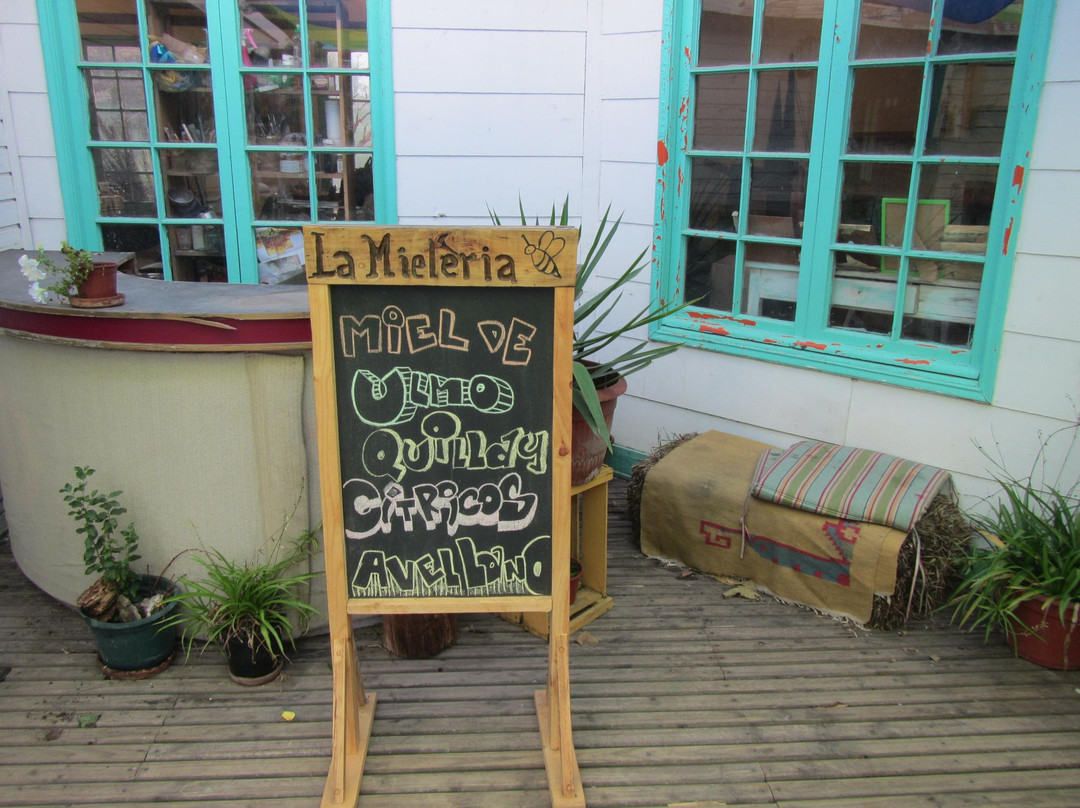 La Mieleria
MIEL DE
ULMO
QUillAY
CiTRiCOS
AVELLANO